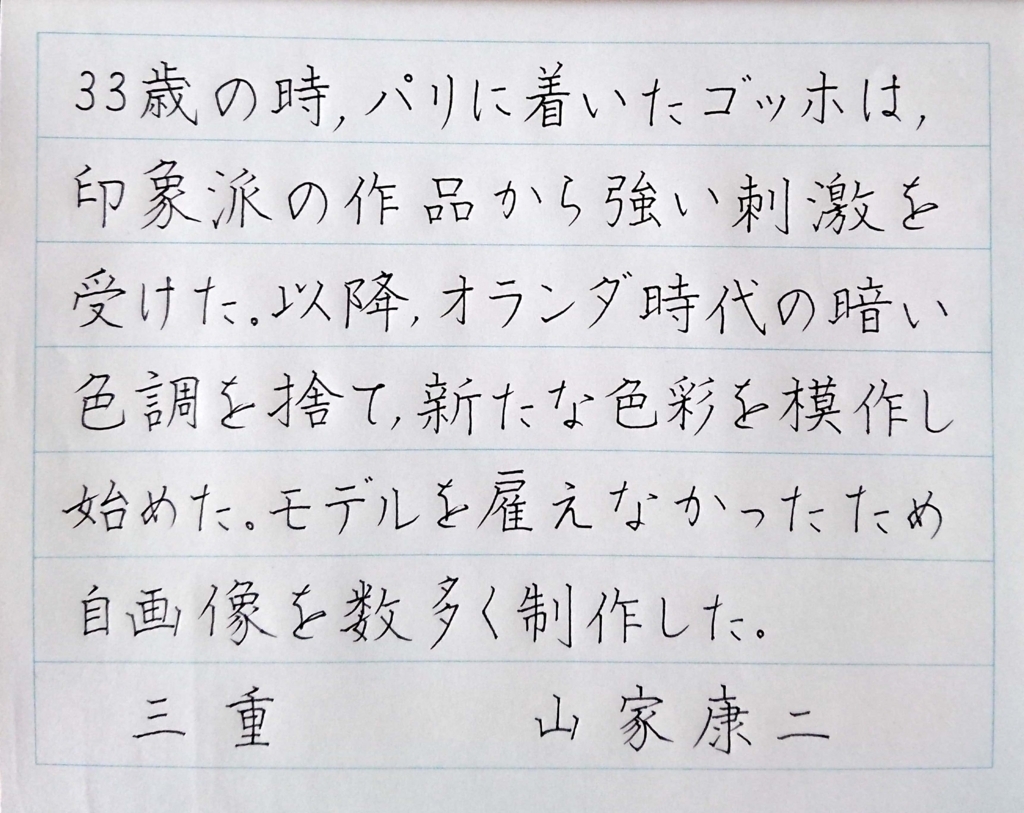 33歳の時,パリに着いたゴッホは,
印象派の作品から強い刺激を
受けた。以降,オランダ時代の暗い
色調を捨て,新たな色彩を模作し
始めた。モデルを雇えなかったため
自画像を数多く制作した。
三重 山家康二